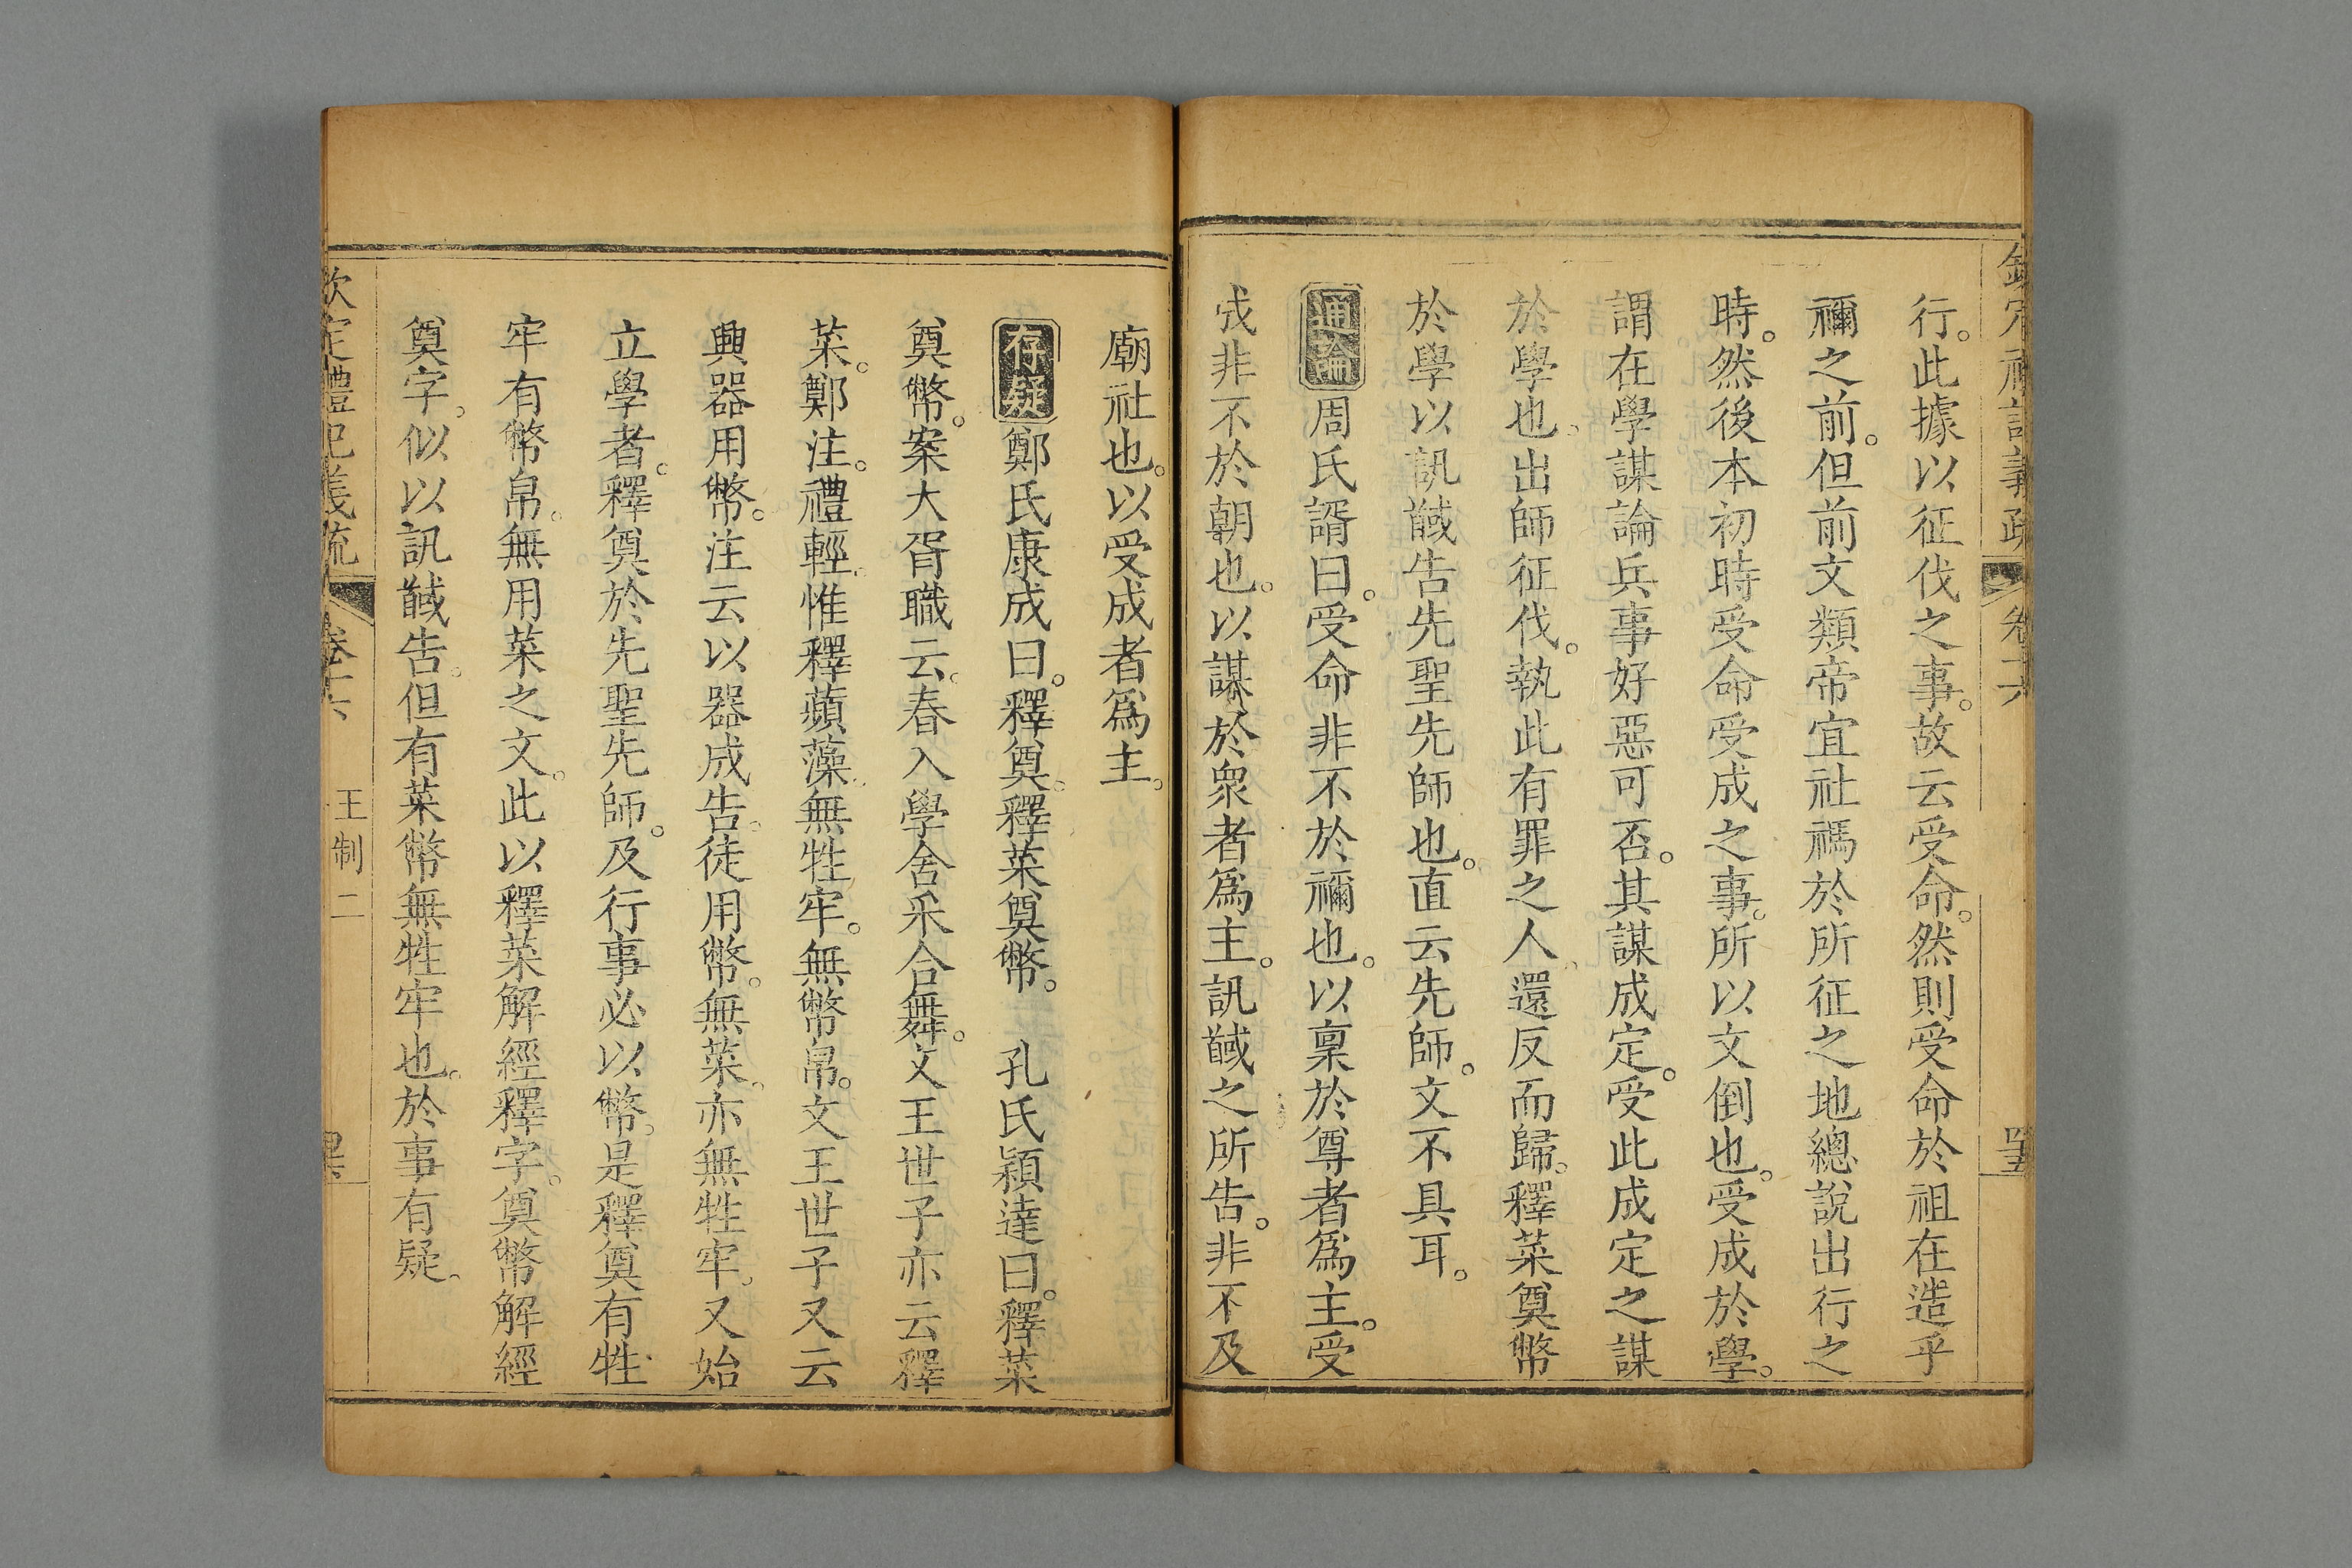 欽定禮記義疏 卷十六 四五
行。此據以征伐之事。故云受命。然則受命於祖在造乎
禰之前。但前文類帝宜社禡於所征之地總說出行之
時。然後本初時受命受成之事。所以文倒也。受成於學。
謂在學謀論兵事好惡可否。其謀成定。受此成定之謀
於學也。出師征伐。執此有罪之人。還反而歸。釋菜奠幣
於學以訊馘告先聖先師也。直云先師。文不具耳。
通論周氏諝曰。受命非不於禰也。以稟於尊者為主。受
成非不於朝也。以謀於衆者為主。訊馘之所告。非不及
廟社也。以受成者為主。
存疑鄭氏康成曰。釋奠。釋菜奠幣。 孔氏穎達曰。釋菜
奠幣。案大胥職云。春入學舍采合舞。文王世子亦云釋
菜。鄭注。禮輕。惟釋蘋藻。無牲牢。無幣帛。文王世子又云
興器用幣。注云以器成告。徒用幣。無菜。亦無牲牢。又始
立學者。釋奠於先聖先師。及行事必以幣。是釋奠有牲
牢有幣帛。無用菜之文。此以釋菜解經釋字。奠幣解經
奠字。似以訊馘告。但有菜幣無牲牢也。於事有疑。
欽定禮記義疏 卷十六 王制二 四六